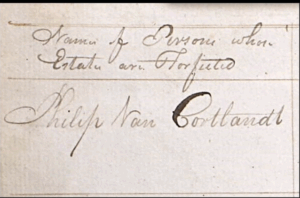 Names of Persons whose
Estates are Forfeited
Philip Van Cortlandt